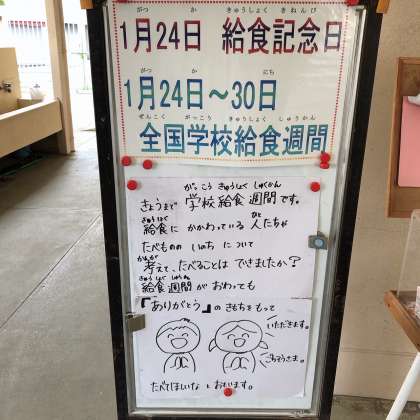 がつ か きゅうしょく きねんび
1月24日 給食記念日
がつ か にち
1月24日～30日
ぜんこく がっこう きゅうしょく しゅうかん
全国学校給食週間
がっこう きゅうしょく しゅうかん
きょうまで 学校給食週間です。
きゅうしょく ひと
給食に かかわっている 人たちや
たべものの いのち について
かんが
考えて、たべることは できましたか?
きゅうしょく しゅうかん
給食週間が おわっても
「ありがとう」の きもちをもって
いただきます。
ごちそうさま。
たべてほしいな とおもいます。